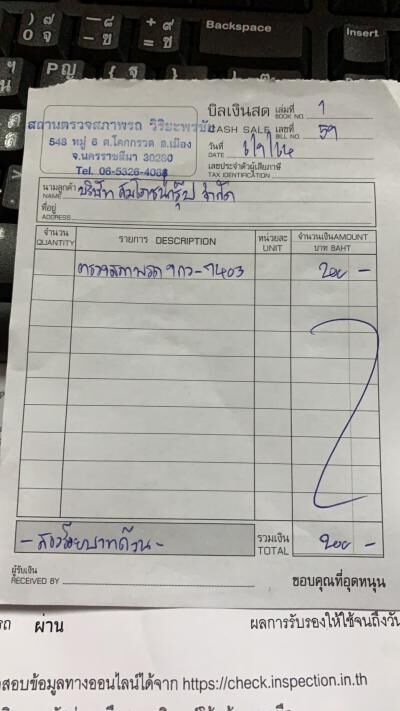 ) ๗
0 จ
— ๘
- ข
+ ๙
= ช
Backspace
Insert
บิลเงินสด เล่มที่ BOOK NO. 1
CASH SALE เลขที่ BILL NO. 59
วันที่ DATE
เลขประจำตัวผู้เสียภาษี
TAX IDENTIFICATION
สถานตรวจสภาพรถ วิริยะพรชัย
548 หมู่ 6 ต.โคกกรวด อ.เมือง
จ.นครราชสีมา 30280
Tel. 06-5326-4088
นามลูกค้า NAME บริษัท จำกัด
ที่อยู่
ADDRESS
จำนวน QUANTITY รายการ DESCRIPTION หน่วยละ UNIT จำนวนเงิน AMOUNT บาท BAHT
ตรวจสภาพรถ 1กว-7403 200 -
- สองร้อยบาทถ้วน - รวมเงิน TOTAL 200 -
ผู้รับเงิน
RECEIVED BY
ขอบคุณที่อุดหนุน
รถ ผ่าน ผลการรับรองให้ใช้จนถึงวัน
สอบข้อมูลทางออนไลน์ได้จาก https://check.inspection.in.th